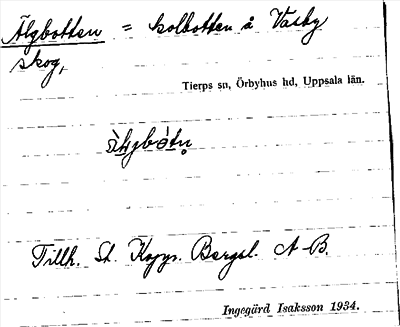 Älgbotten = kolbotten å Vasby
skog,
Tierps sn, Örbyhus hd, Uppsala län.
Tillh. St. Kopps. Bergsl. A-B.
Ingegärd Isaksson 1934.